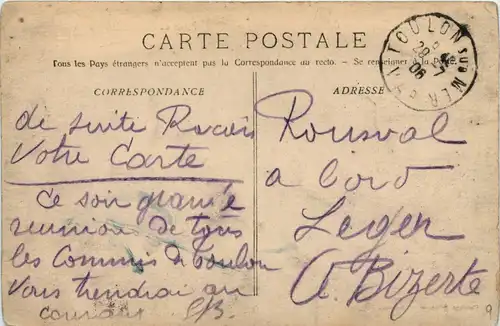 CARTE POSTALE
Tous les Pays étrangers n'acceptent pas la Correspondance au recto. — Se renseigner à la Poste.
CORRESPONDANCE
ADRESSE
TOULON SUR MER
28 -7 06
de suite
Votre Carte
Ce soir
reunion de tous
les Commis de Toulon
Vous tiendrai au
courant
Rousval
a bord
Leger
A Bizerte